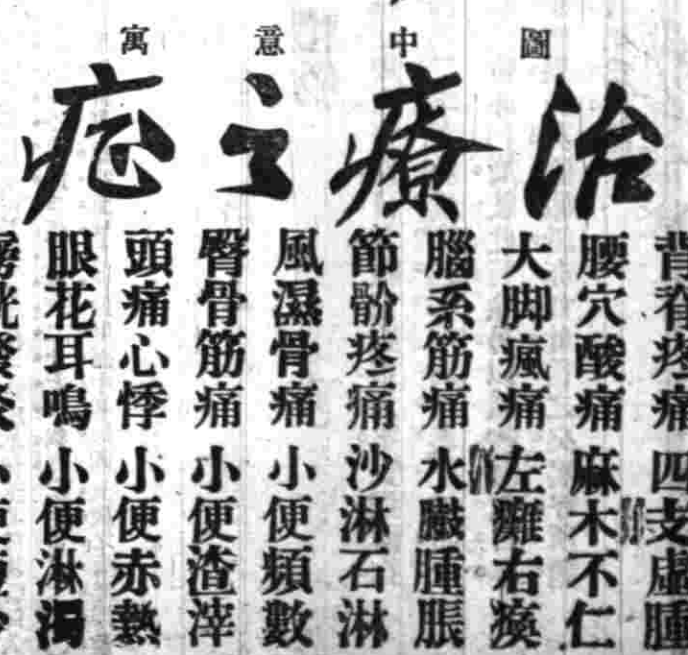 圖中意寓
治療之症
背脊疼痛 四支虛腫
腰穴酸痛 麻木不仁
大脚瘋痛 左癱右瘓
腦系筋痛 水臌腫脹
節骱疼痛 沙淋石淋
風濕骨痛 小便頻數
臀骨筋痛 小便渣滓
頭痛心悸 小便赤熱
眼花耳鳴 小便淋濁